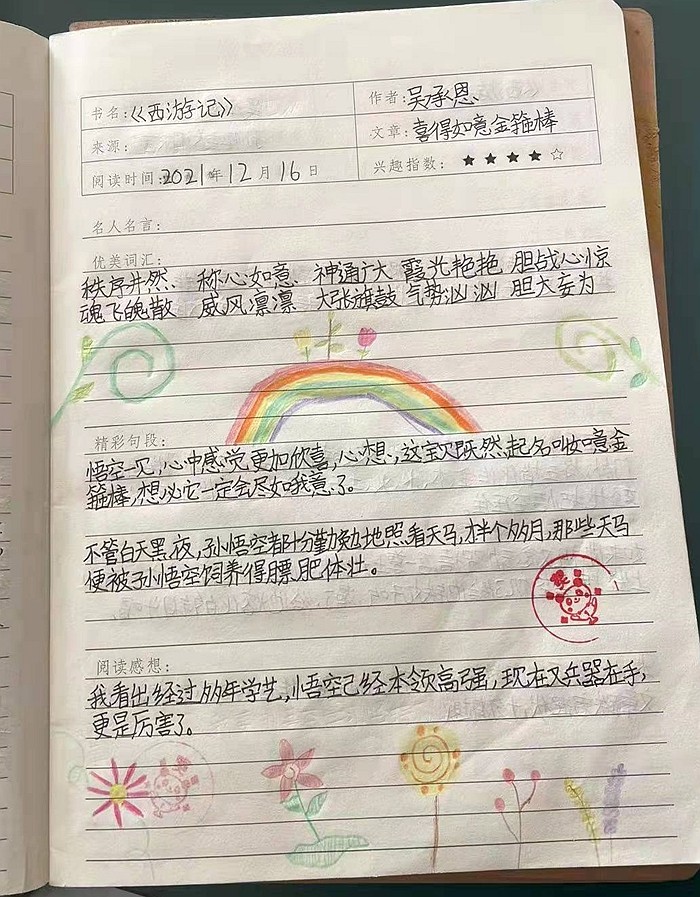 书名:《西游记》 作者:吴承恩
来源: 文章:喜得如意金箍棒
阅读时间:2021年12月16日 兴趣指数:★★★★☆
名人名言:
优美词汇:
秩序井然、 称心如意、 神通广大 霞光艳艳 胆战心惊
魂飞魄散 威风凛凛 大张旗鼓 气势汹汹 胆大妄为
精彩句段:
悟空一见,心中感觉更加欣喜,心想,这宝贝既然起名叫如意金
箍棒,想必它一定会尽如我意了。
不管白天黑夜,孙悟空都十分勤勉地照看天马,才半个多月,那些天马
便被孙悟空饲养得膘肥体壮。
阅读感想:
我看出经过多年学艺,悟空已经本领高强,现在又兵器在手,
更是厉害了。